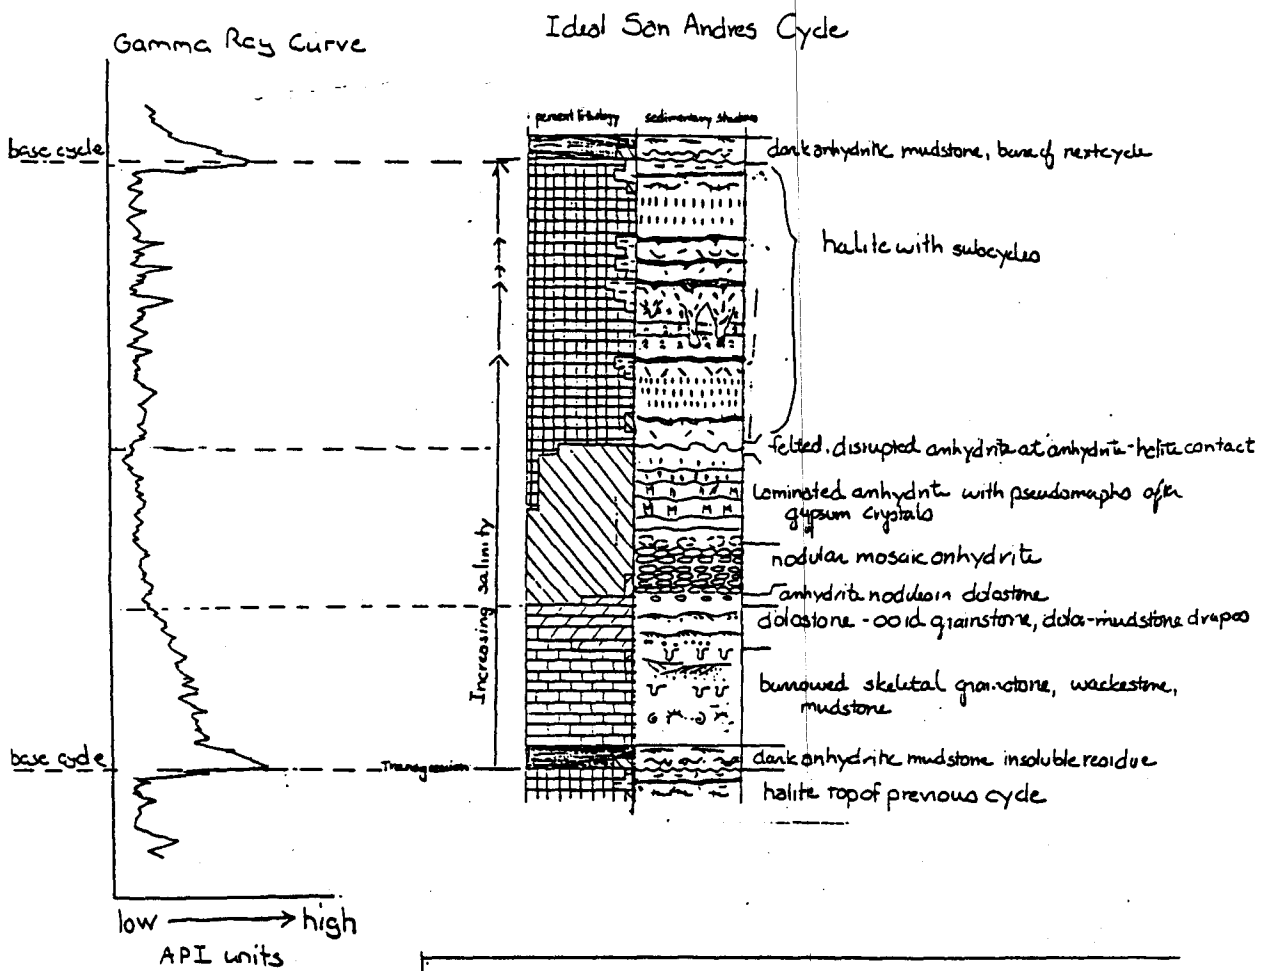 Ideal San Andres Cycle
Gamma Ray Curve
percent lithology
sedimentary structures
base cycle
dark anhydritic mudstone, base of next cycle
halite with subcycles
felted, disrupted anhydrite at anhydrite-halite contact
laminated anhydrite with pseudomorphs after
gypsum crystals
nodular mosaic anhydrite
anhydrite nodules in dolostone
dolostone - ooid grainstone, dolo-mudstone drapes
Increasing salinity
burrowed skeletal grainstone, wackestone,
mudstone
base cycle
Transgression
dark anhydritic mudstone insoluble residue
halite top of previous cycle
low high
API units